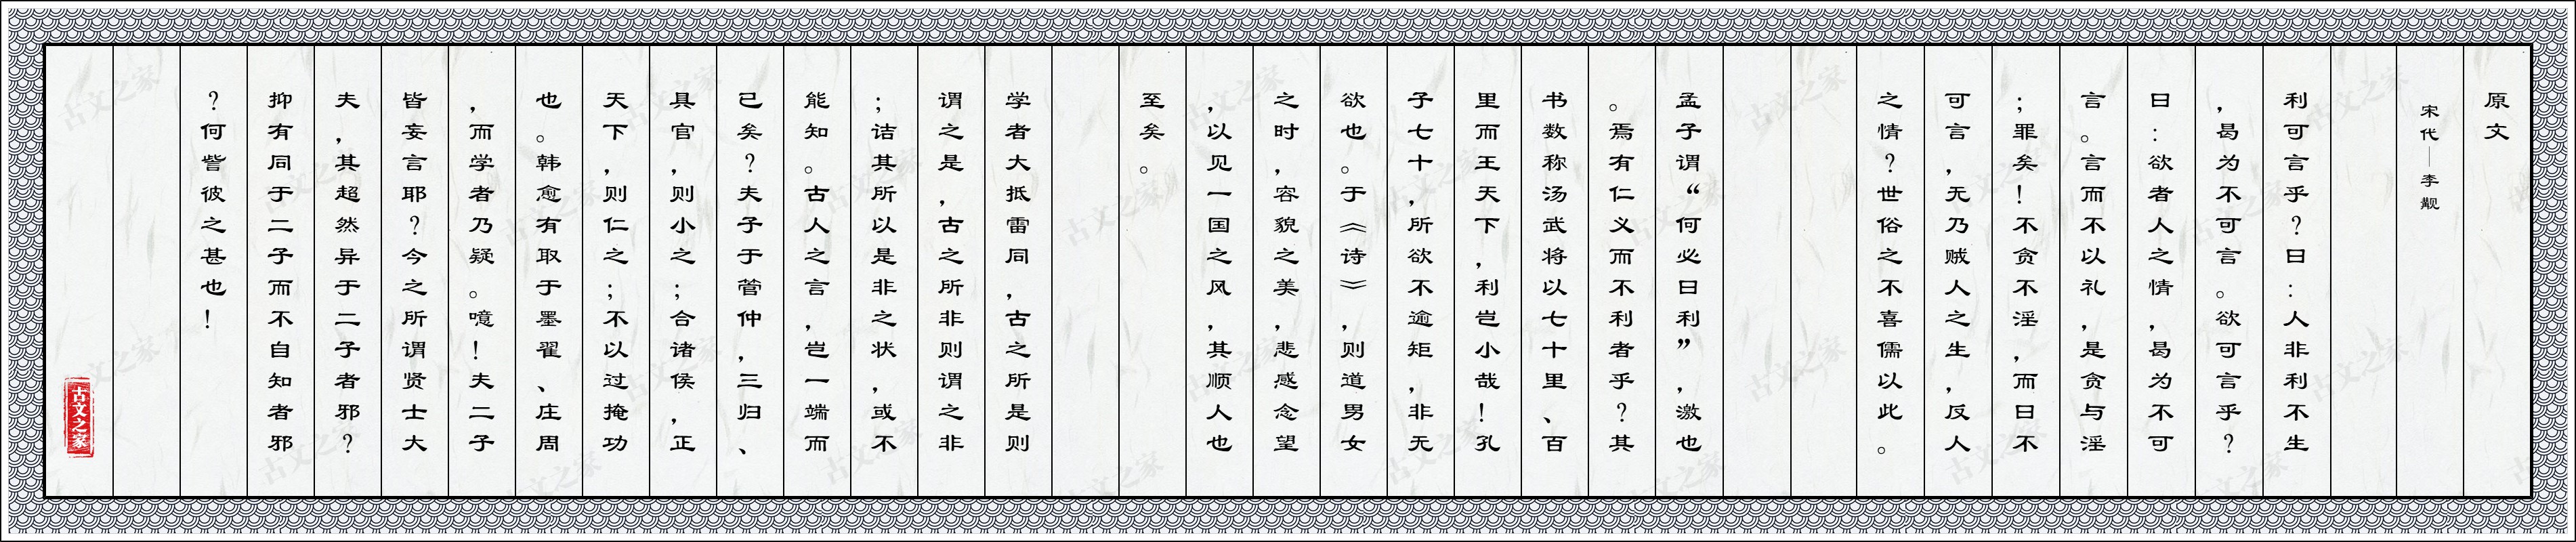 原文
宋代——李觏
利可言乎？曰：人非利不生
，曷为不可言。欲可言乎？
曰：欲者人之情，曷为不可
言。言而不以礼，是贪与淫
；罪矣！不贪不淫，而曰不
可言，无乃贼人之生，反人
之情？世俗之不喜儒以此。
孟子谓“何必曰利”，激也
。焉有仁义而不利者乎？其
书数称汤武将以七十里、百
里而王天下，利岂小哉！孔
子七十，所欲不逾矩，非无
欲也。于《诗》，则道男女
之时，容貌之美，悲感念望
，以见一国之风，其顺人也
至矣。
学者大抵雷同，古之所是则
谓之是，古之所非则谓之非
；诘其所以是非之状，或不
能知。古人之言，岂一端而
已矣？夫子于管仲，三归、
具官，则小之；合诸侯，正
天下，则仁之；不以过掩功
也。韩愈有取于墨翟、庄周
，而学者乃疑。噫！夫二子
皆妄言耶？今之所谓贤士大
夫，其超然异于二子者邪？
抑有同于二子而不自知者邪
？何訾彼之甚也！
古文之家